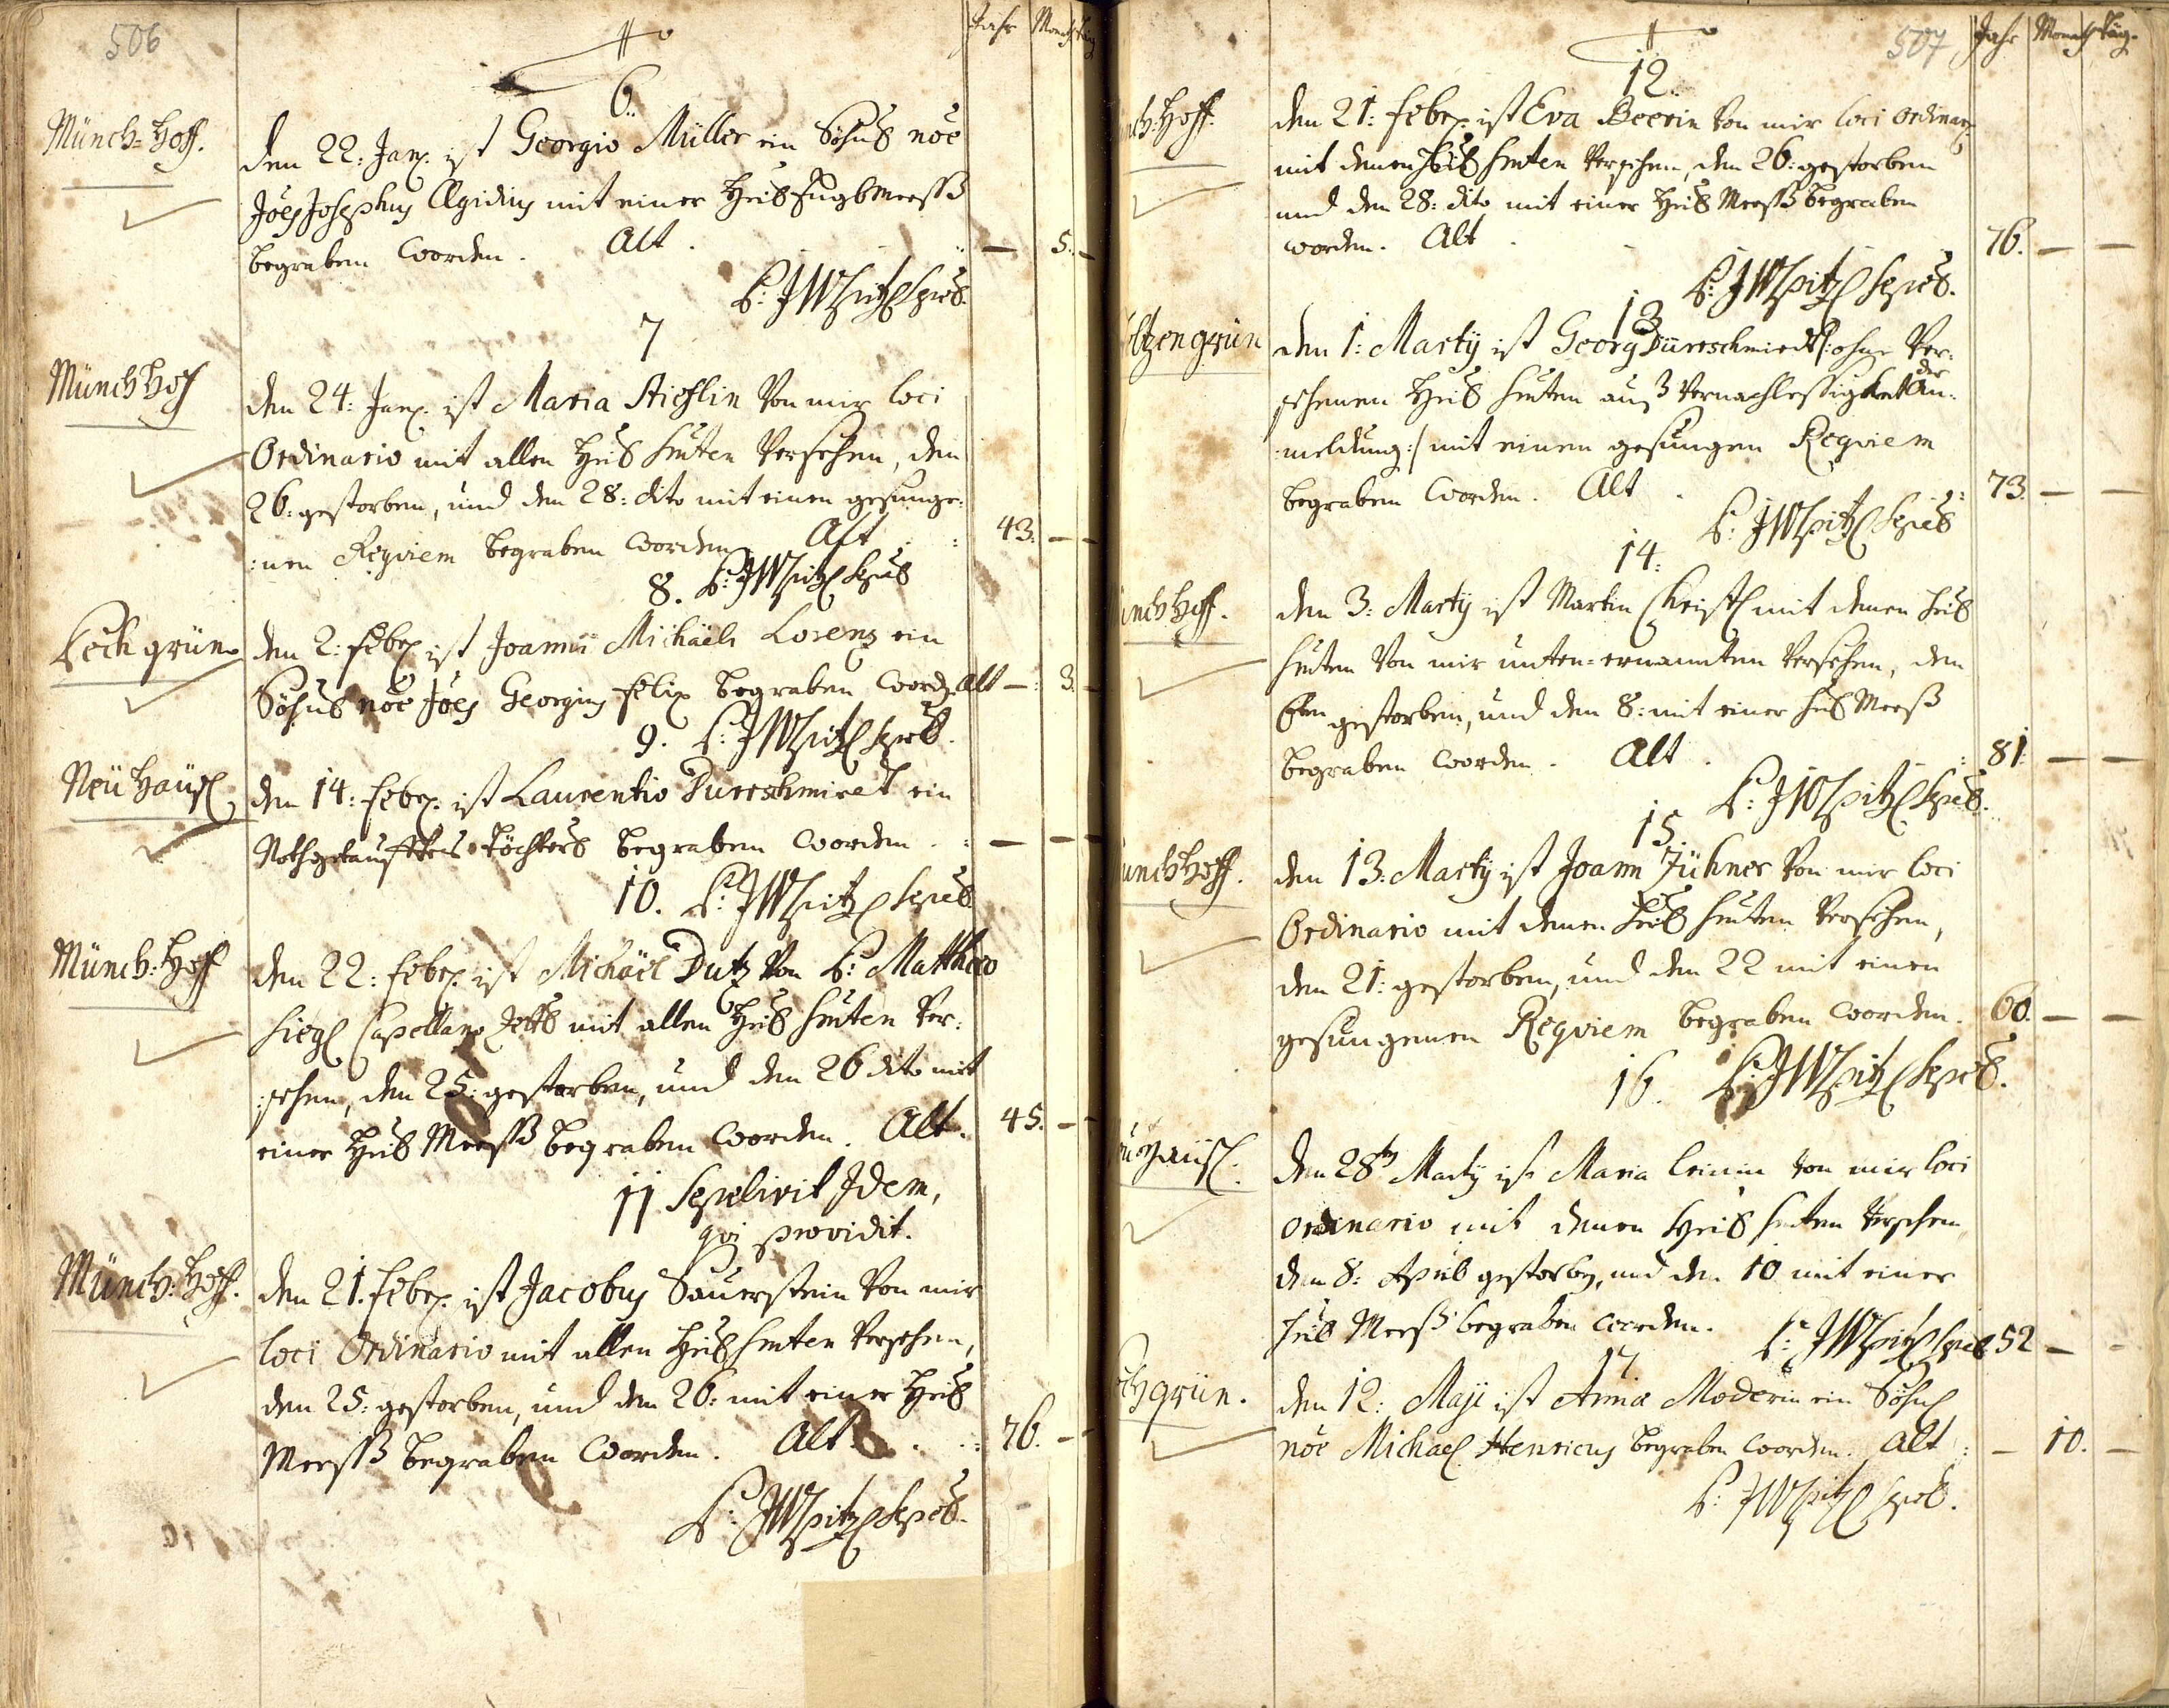 506
Jahr Monath Täg
6.
Münch-Hoff.
den 22: Jan. ist Georgio Müller ein Söhnl noe
Joes Josephus Ægidius mit einer Heil Engl Meeß
begraben worden. Alt. — 5. —
P: JWSpitzl Sepel.
7
Münch Hof
den 24: Jan. ist Maria Stichlin von mir loci
Ordinario mit allen Heil Smten versehen, den
26: gestorben, und den 28: dito mit einen gesunge-
:nen Reqviem begraben worden Alt : 43. — —
8. P: JWSpitzl Sepel
Böhgrün
den 2: Febr. ist Joannii Michäeli Lorenz ein
Söhnl noe Joes Georgius Felix begraben word. Alt — : 3. —
9. P: JWSpitzl Sepel.
Neü Haüsl
den 14: Febr. ist Laurentio Dürrschmiedt ein
Nothgetaufftes Töchterl begraben worden. : — — —
10. P: JWSpitzl Sepel.
Münch: Hoff
den 22: Febr. ist Michäel Dutz von P: Matthæo
Siegl Capellano mit allen Heil Smten ver:
:sehen, den 25: gestorben, und den 26 dito mit
einer Heil Meeß begraben worden. Alt. 45. —
11 Sepelivit Idem,
qvi providit.
Münch: Hoff.
den 21. Febr. ist Jacobus Sauerstein von mir
loci Ordinario mit allen Heil Smten versehen,
den 25: gestorben, und den 26: mit einer Heil
Meeß begraben worden. Alt. 76. —
P: JWSpitzl Sepel.
507
Jahr Monath Täg.
12.
ch: Hoff.
den 21: Febr. ist Eva Beerin von mir loci Ordinar.
mit denen Heil Smten versehen, den 26: gestorben
und den 28: dito mit einer Heil Meeß begraben
worden. Alt. 76. — —
P: JWSpitzl Sepel.
13
ltzengrün
den 1: Martÿ ist Georg Dürrschmiedt /: ohne ver:
sehenen Heil Smten auß vernachlessigkeit der An:
:meldung :/ mit einen gesungen Reqviem
begraben worden. Alt. : 73. — —
P: JWSpitzl Sepel
14:
ünch Hoff.
den 3: Martÿ ist Martin Christl mit denen Heil
Smten von mir unten-ernannten versehen, den
6ten gestorben, und den 8: mit einer Heil Meeß
begraben worden. Alt. : 81. — —
P: JWSpitzl Sepel.
15.
ünch Hoff.
den 13: Martÿ ist Joann Zühner von mir loci
Ordinario mit denen Heil Smten versehen,
den 21: gestorben, und den 22 mit einen
gesungenen Reqviem begraben worden. 60. — —
16. P: JWSpitzl Sepel.
eü Haüsl.
den 28t Martÿ ist Maria von mir loci
Ordinario mit denen Heil Smten versehen
den 8: April gestorben, und den 10 mit einer
Heil Meeß begraben worden. P: JWSpitzl Sepel 52 — -
17.
hgrün.
den 12: Maji ist Anna Moderin ein Söhnl
noe Michael Henricus begraben worden. Alt : — 10. —
P: JWSpitzl Sepel.